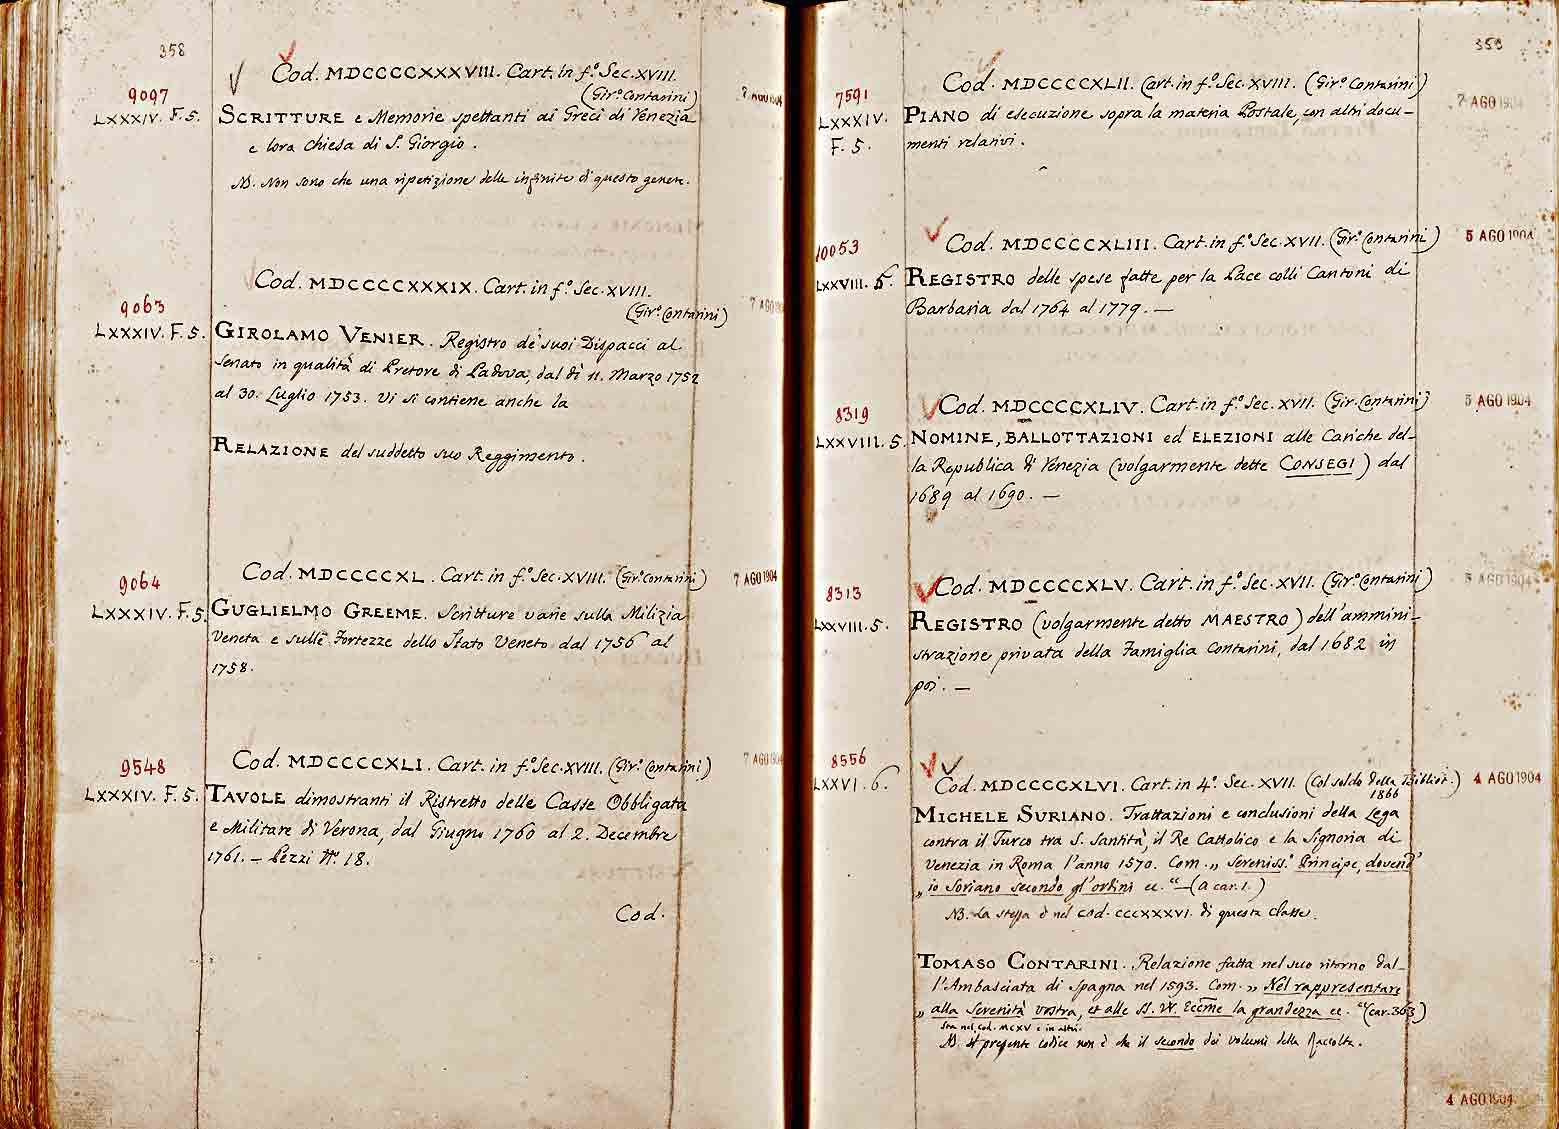 358
Cod. MDCCCCXXXVIII. Cart. in f.º Sec. XVIII.
(Gir.º Contarini)
9097
7 AGO 1904
LXXXIV. F. 5.
SCRITTURE e Memorie spettanti ai Greci di Venezia
e loro chiesa di S. Giorgio.
NB. Non sono che una ripetizione delle infinite di questo genere.
Cod. MDCCCCXXXIX. Cart. in f.º Sec. XVIII.
(Gir.º Contarini)
9063
7 AGO
LXXXIV. F. 5.
GIROLAMO VENIER. Registro de' suoi Dispacci al
Senato in qualità di Pretore di Padova, dal dì 11. Marzo 1752
al 30. Luglio 1753. Vi si contiene anche la
RELAZIONE del suddetto suo Reggimento.
Cod. MDCCCCXL. Cart. in f.º Sec. XVIII. (Gir.º Contarini)
7 AGO 1904
9064
LXXXIV. F. 5.
GUGLIELMO GREEME. Scritture varie sulla Milizia
Veneta e sulle Fortezze dello Stato Veneto dal 1756 al
1758.
Cod. MDCCCCXLI. Cart. in f.º Sec. XVIII. (Gir.º Contarini)
7 AGO 1904
9548
LXXXIV. F. 5.
TAVOLE dimostranti il Ristretto delle Casse Obbligata
e Militare di Verona, dal Giugno 1760 al 2. Decembre
1761. – Pezzi Nº. 18.
Cod.
359
Cod. MDCCCCXLII. Cart. in f.º Sec. XVIII. (Gir.º Contarini)
7591
7 AGO 1904
LXXXIV.
F. 5.
PIANO di esecuzione sopra la materia Postale, con altri docu-
menti relativi.
Cod. MDCCCCXLIII. Cart. in f.º Sec. XVII. (Gir.º Contarini)
5 AGO 1904
10053
LXXVIII. 6.
REGISTRO delle spese fatte per la Pace colli Cantoni di
Barbaria dal 1764 al 1779. —
Cod. MDCCCCXLIV. Cart. in f.º Sec. XVII. (Gir. Contarini)
5 AGO 1904
8319
LXXVIII. 5.
NOMINE, BALLOTTAZIONI ed ELEZIONI alle Cariche del-
la Republica di Venezia (volgarmente dette CONSEGI) dal
1689 al 1690. —
Cod. MDCCCCXLV. Cart. in f.º Sec. XVII. (Gir.º Contarini)
5 AGO 1904
8313
LXXVIII. 5.
REGISTRO (volgarmente detto MAESTRO) dell'ammini-
strazione privata della Famiglia Contarini, dal 1682 in
poi. —
8556
LXXVI. 6.
Cod. MDCCCCXLVI. Cart. in 4º. Sec. XVII. (Col soldo della Bibliot.)
1866
4 AGO 1904
MICHELE SURIANO. Trattazioni e conclusioni della Lega
contra il Turco tra S. Santità, il Re Cattolico e la Signoria di
Venezia in Roma l'anno 1570. Com. „ Sereniss.º Principe, dovend'
„ io Soriano secondo gl'ordini ec. “ – (a car. 1.)
NB. La stessa è nel cod. CCCXXXVI. di questa classe.
TOMASO CONTARINI. Relazione fatta nel suo ritorno dal-
l'Ambasciata di Spagna nel 1593. Com. „ Nel rappresentare
„ alla Serenità vostra, et alle SS. VV. Eccme la grandezza ec. “ (car. 363)
Sta nel cod. MCXV e in altri.
NB. Il presente codice non è che il secondo dei volumi della Raccolta.
4 AGO 1904